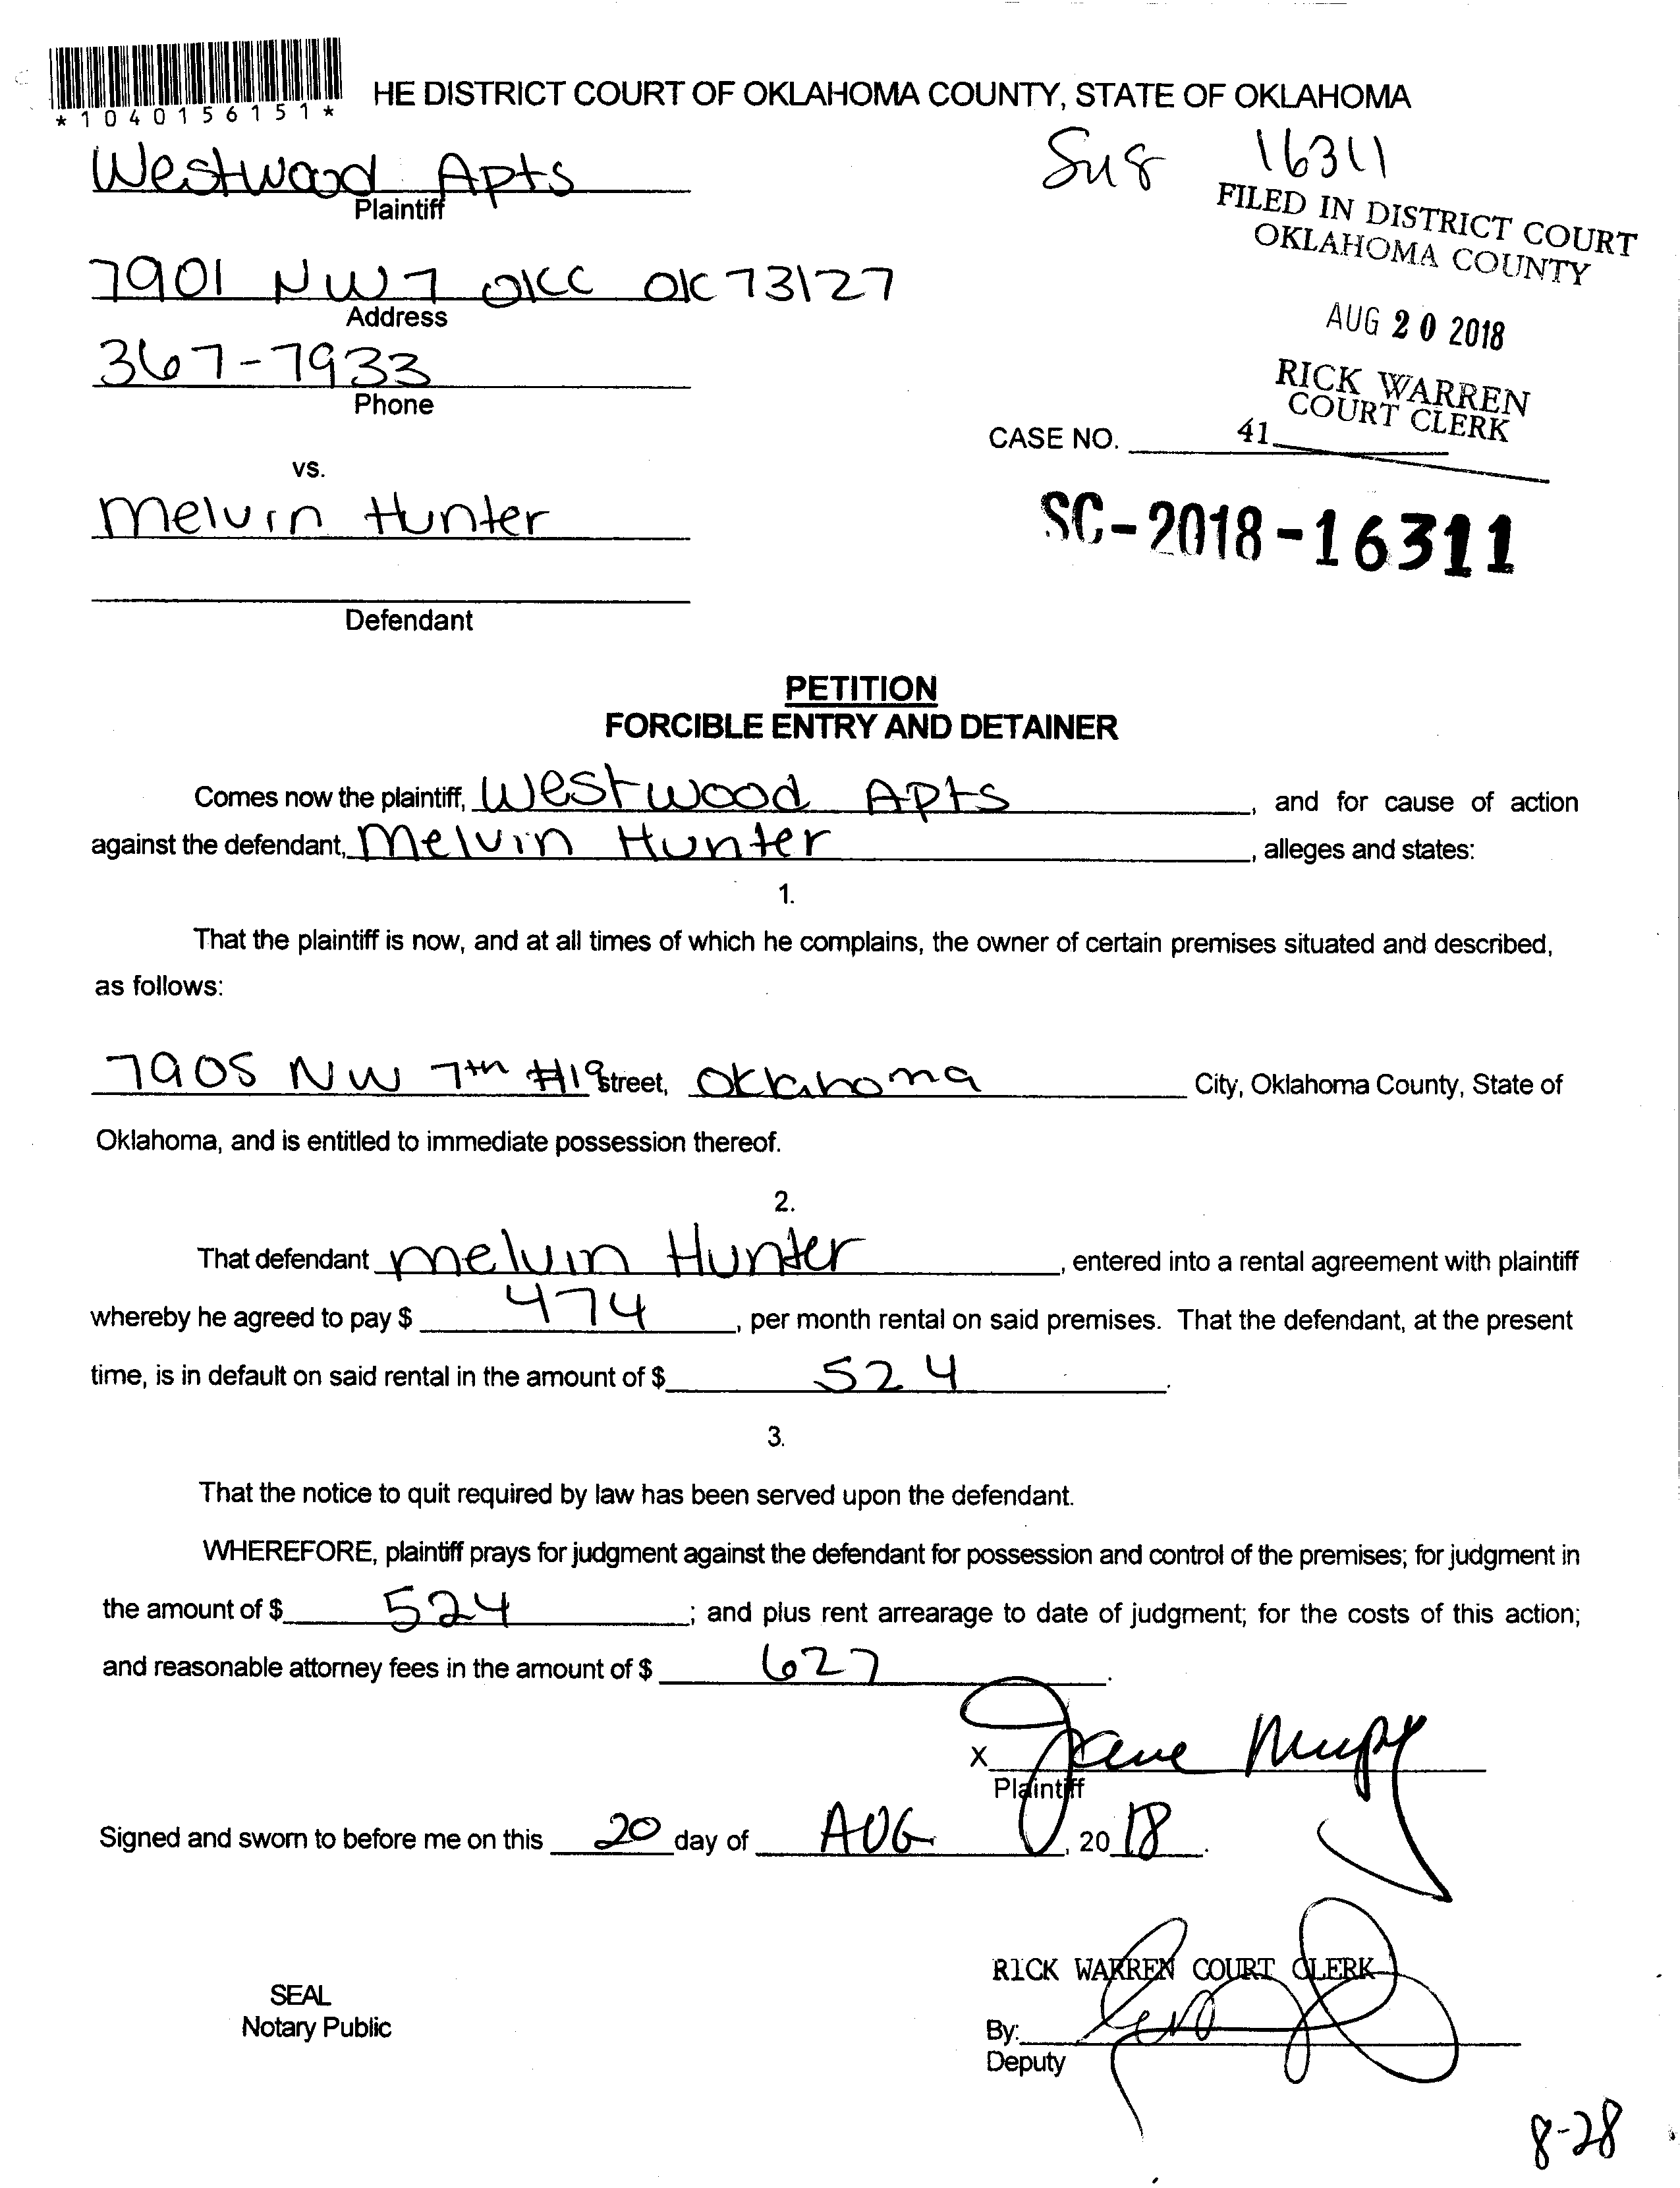 *1040156151*
HE DISTRICT COURT OF OKLAHOMA COUNTY, STATE OF OKLAHOMA
16311
Westwood Apts
Plaintiff
FILED IN DISTRICT COURT
OKLAHOMA COUNTY
7901 NW 7 OKC OK 73127
Address
AUG 20 2018
367-7933
Phone
RICK WARREN
COURT CLERK
CASE NO. 41
vs.
Melvin Hunter
SC-2018-16311
Defendant
PETITION
FORCIBLE ENTRY AND DETAINER
Comes now the plaintiff, Westwood Apts, and for cause of action
against the defendant, Melvin Hunter, alleges and states:
1.
That the plaintiff is now, and at all times of which he complains, the owner of certain premises situated and described,
as follows:
7905 NW 7th #19 street, Oklahoma City, Oklahoma County, State of
Oklahoma, and is entitled to immediate possession thereof.
2.
That defendant Melvin Hunter, entered into a rental agreement with plaintiff
whereby he agreed to pay $ 474, per month rental on said premises. That the defendant, at the present
time, is in default on said rental in the amount of $ 524.
3.
That the notice to quit required by law has been served upon the defendant.
WHEREFORE, plaintiff prays for judgment against the defendant for possession and control of the premises; for judgment in
the amount of $ 524; and plus rent arrearage to date of judgment; for the costs of this action;
and reasonable attorney fees in the amount of $ 627.
X
Plaintiff
Signed and sworn to before me on this 20 day of AUG, 2018.
RICK WARREN COURT CLERK
SEAL
Notary Public
By:
Deputy
8-28